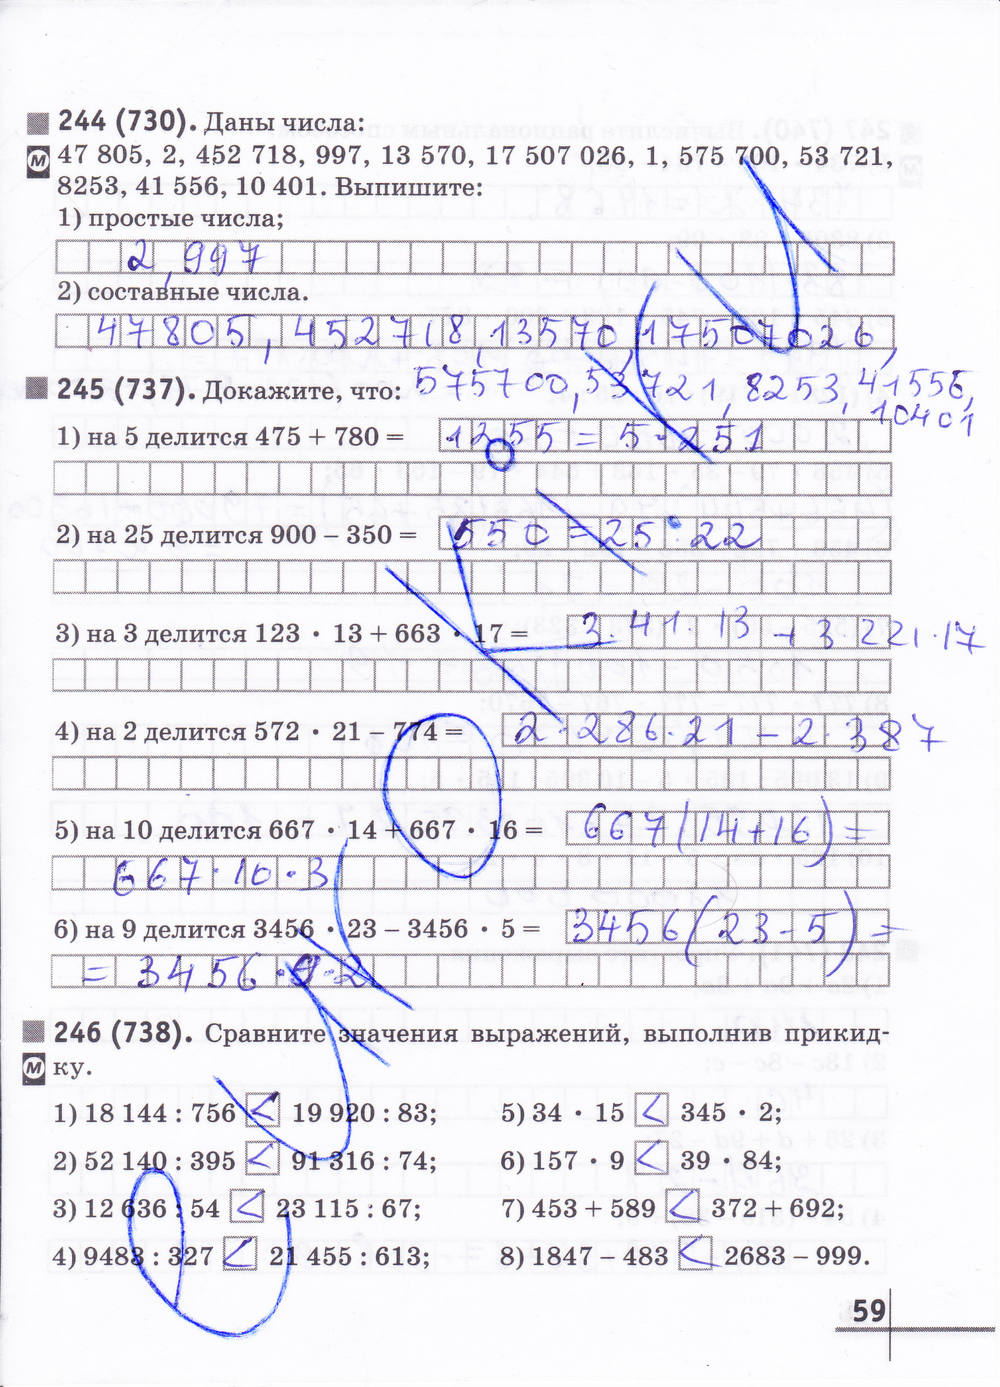 244 (730). Даны числа:
М 47 805, 2, 452 718, 997, 13 570, 17 507 026, 1, 575 700, 53 721,
8253, 41 556, 10 401. Выпишите:
1) простые числа;
2, 997
2) составные числа.
47805, 452718, 13570, 17507026,
575700, 53721, 8253, 41556,
10401
245 (737). Докажите, что:
1) на 5 делится 475 + 780 = 1255 = 5 · 251
2) на 25 делится 900 − 350 = 550 = 25 · 22
3) на 3 делится 123 · 13 + 663 · 17 = 3 · 41 · 13 + 3 221 · 17
4) на 2 делится 572 · 21 − 774 = 2 · 286 · 21 − 2 · 387
5) на 10 делится 667 · 14 + 667 · 16 = 667 (14 + 16) =
667 · 10 · 3
6) на 9 делится 3456 · 23 − 3456 · 5 = 3456 (23 − 5) =
= 3456 · 9 · 2
246 (738). Сравните значения выражений, выполнив прикид-
М ку.
1) 18 144 : 756 < 19 920 : 83; 5) 34 · 15 < 345 · 2;
2) 52 140 : 395 < 91 316 : 74; 6) 157 · 9 < 39 · 84;
3) 12 636 : 54 < 23 115 : 67; 7) 453 + 589 < 372 + 692;
4) 9483 : 327 < 21 455 : 613; 8) 1847 − 483 < 2683 − 999.
59